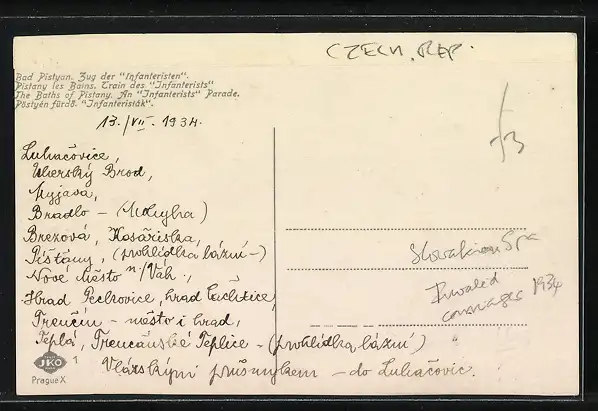 CZECH. REP.
Bad Pistyan. Zug der "Infanteristen".
Pistany les Bains. Train des "Infanterists"
The Baths of Pistany. An "Infanterists" Parade.
Pöstyén fürdő. "Infanteristák".
13./VII. 1934.
£3
Luhačovice,
Uherský Brod,
Myjava,
Bradlo - (Mohyla)
Brezová, Kosáriska,
Píšťany, (prohlídka lázní-)
Nové Město n/Váh.,
Hrad Beckovice, hrad Čachtice,
Trenčín - město i hrad,
Teplá, Trenčanské Teplice - (prohlídka lázní)
Vlárským průsmykem - do Luhačovic.
Slovakian Spa
Invalid
carriages 1934
JKO
1
Prague X